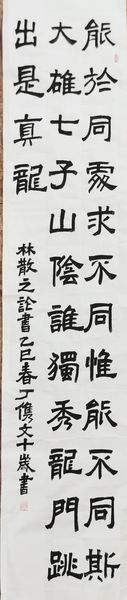 能於同處求不同惟能不同斯
大雄七子山陰誰獨秀龍門跳
出是真龍
林散之論書乙巳春丁儁文十歲書